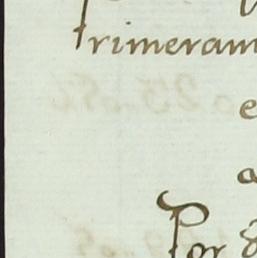 Primeram
e
a
Por